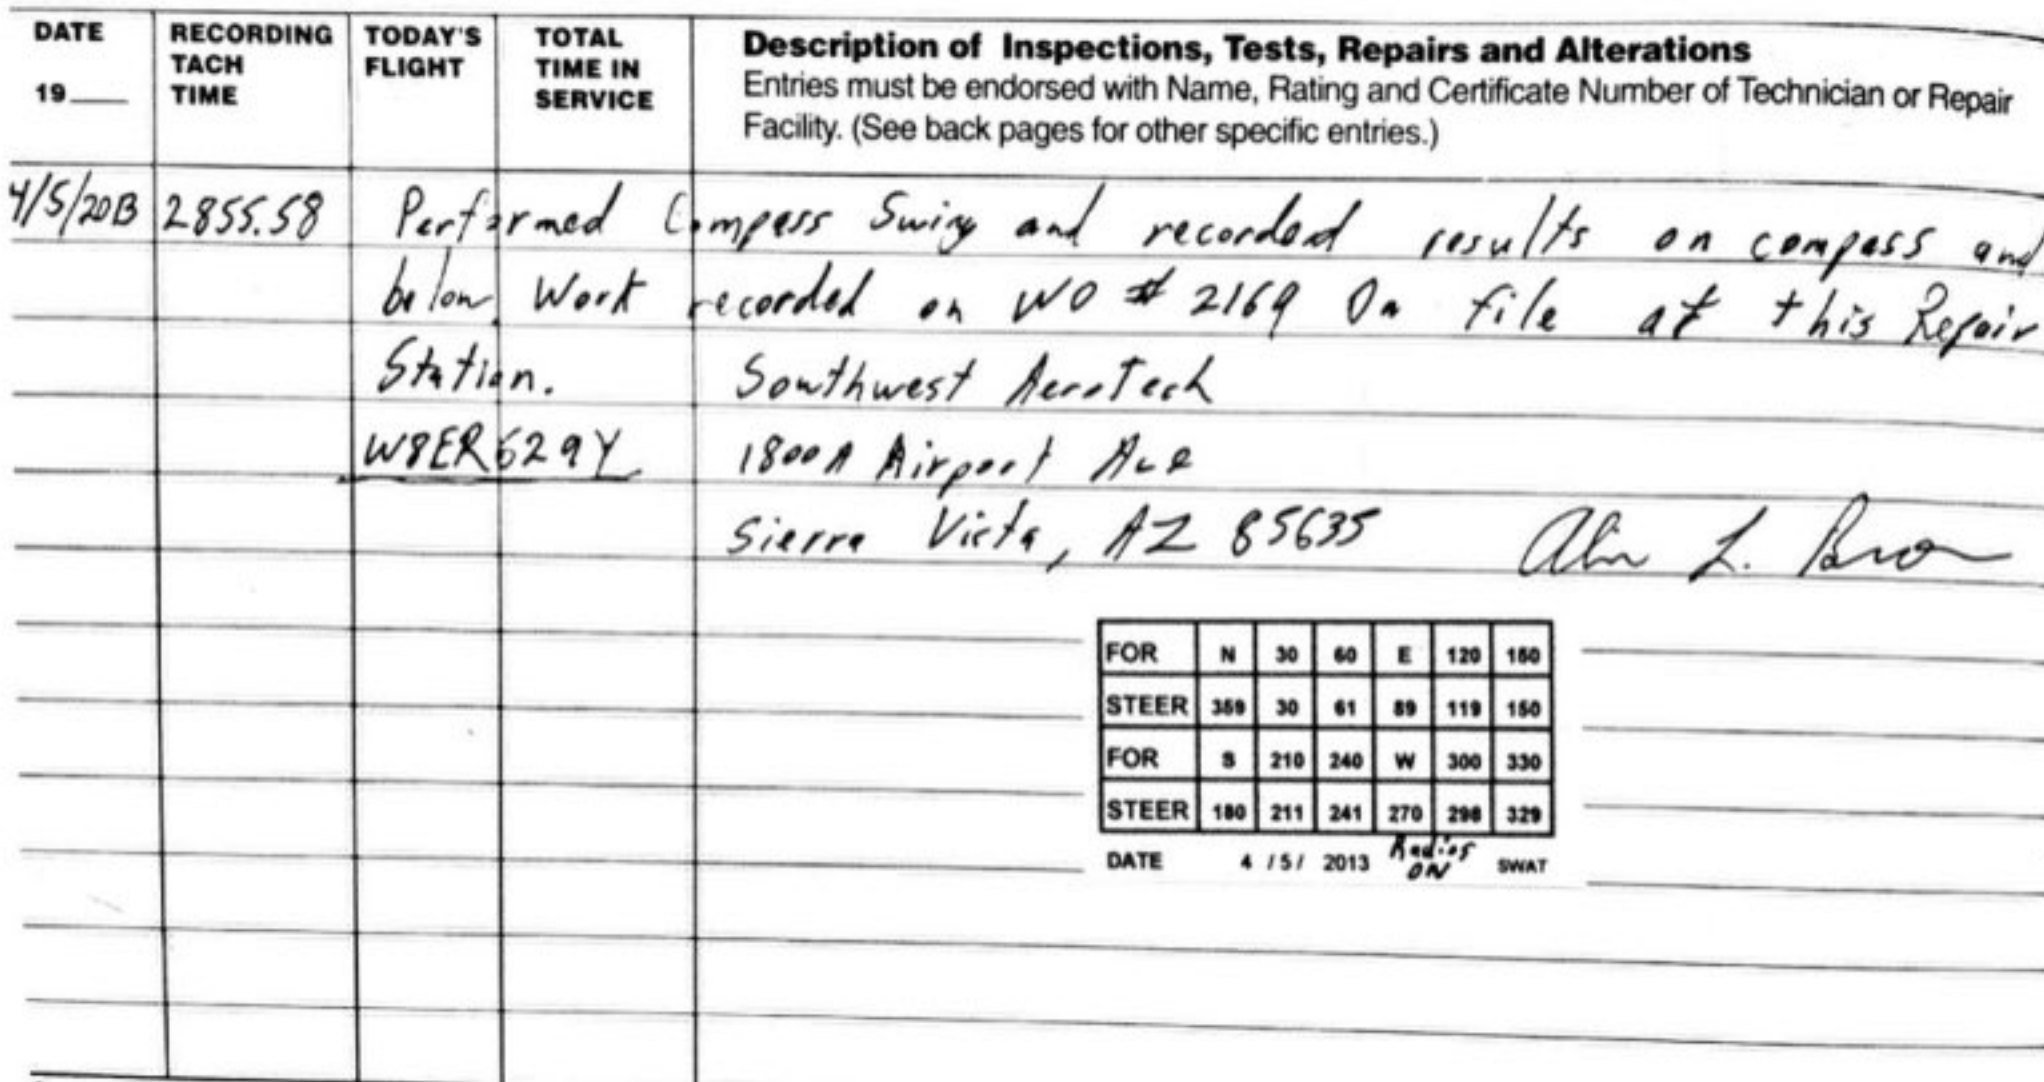 DATE 19___ RECORDING TACH TIME TODAY'S FLIGHT TOTAL TIME IN SERVICE
Description of Inspections, Tests, Repairs and Alterations
Entries must be endorsed with Name, Rating and Certificate Number of Technician or Repair
Facility. (See back pages for other specific entries.)
4/5/2013 2855.58 Performed Compass Swing and recorded results on compass and
below. Work recorded on WO # 2169 On file at this Repair
Station. Southwest AeroTech
W8ER629Y 1800A Airport Ave
Sierra Vista, AZ 85635 L.
FOR N 30 60 E 120 150
STEER 359 30 61 89 119 150
FOR S 210 240 W 300 330
STEER 180 211 241 270 298 329
DATE 4 /5/ 2013 Radios ON SWAT